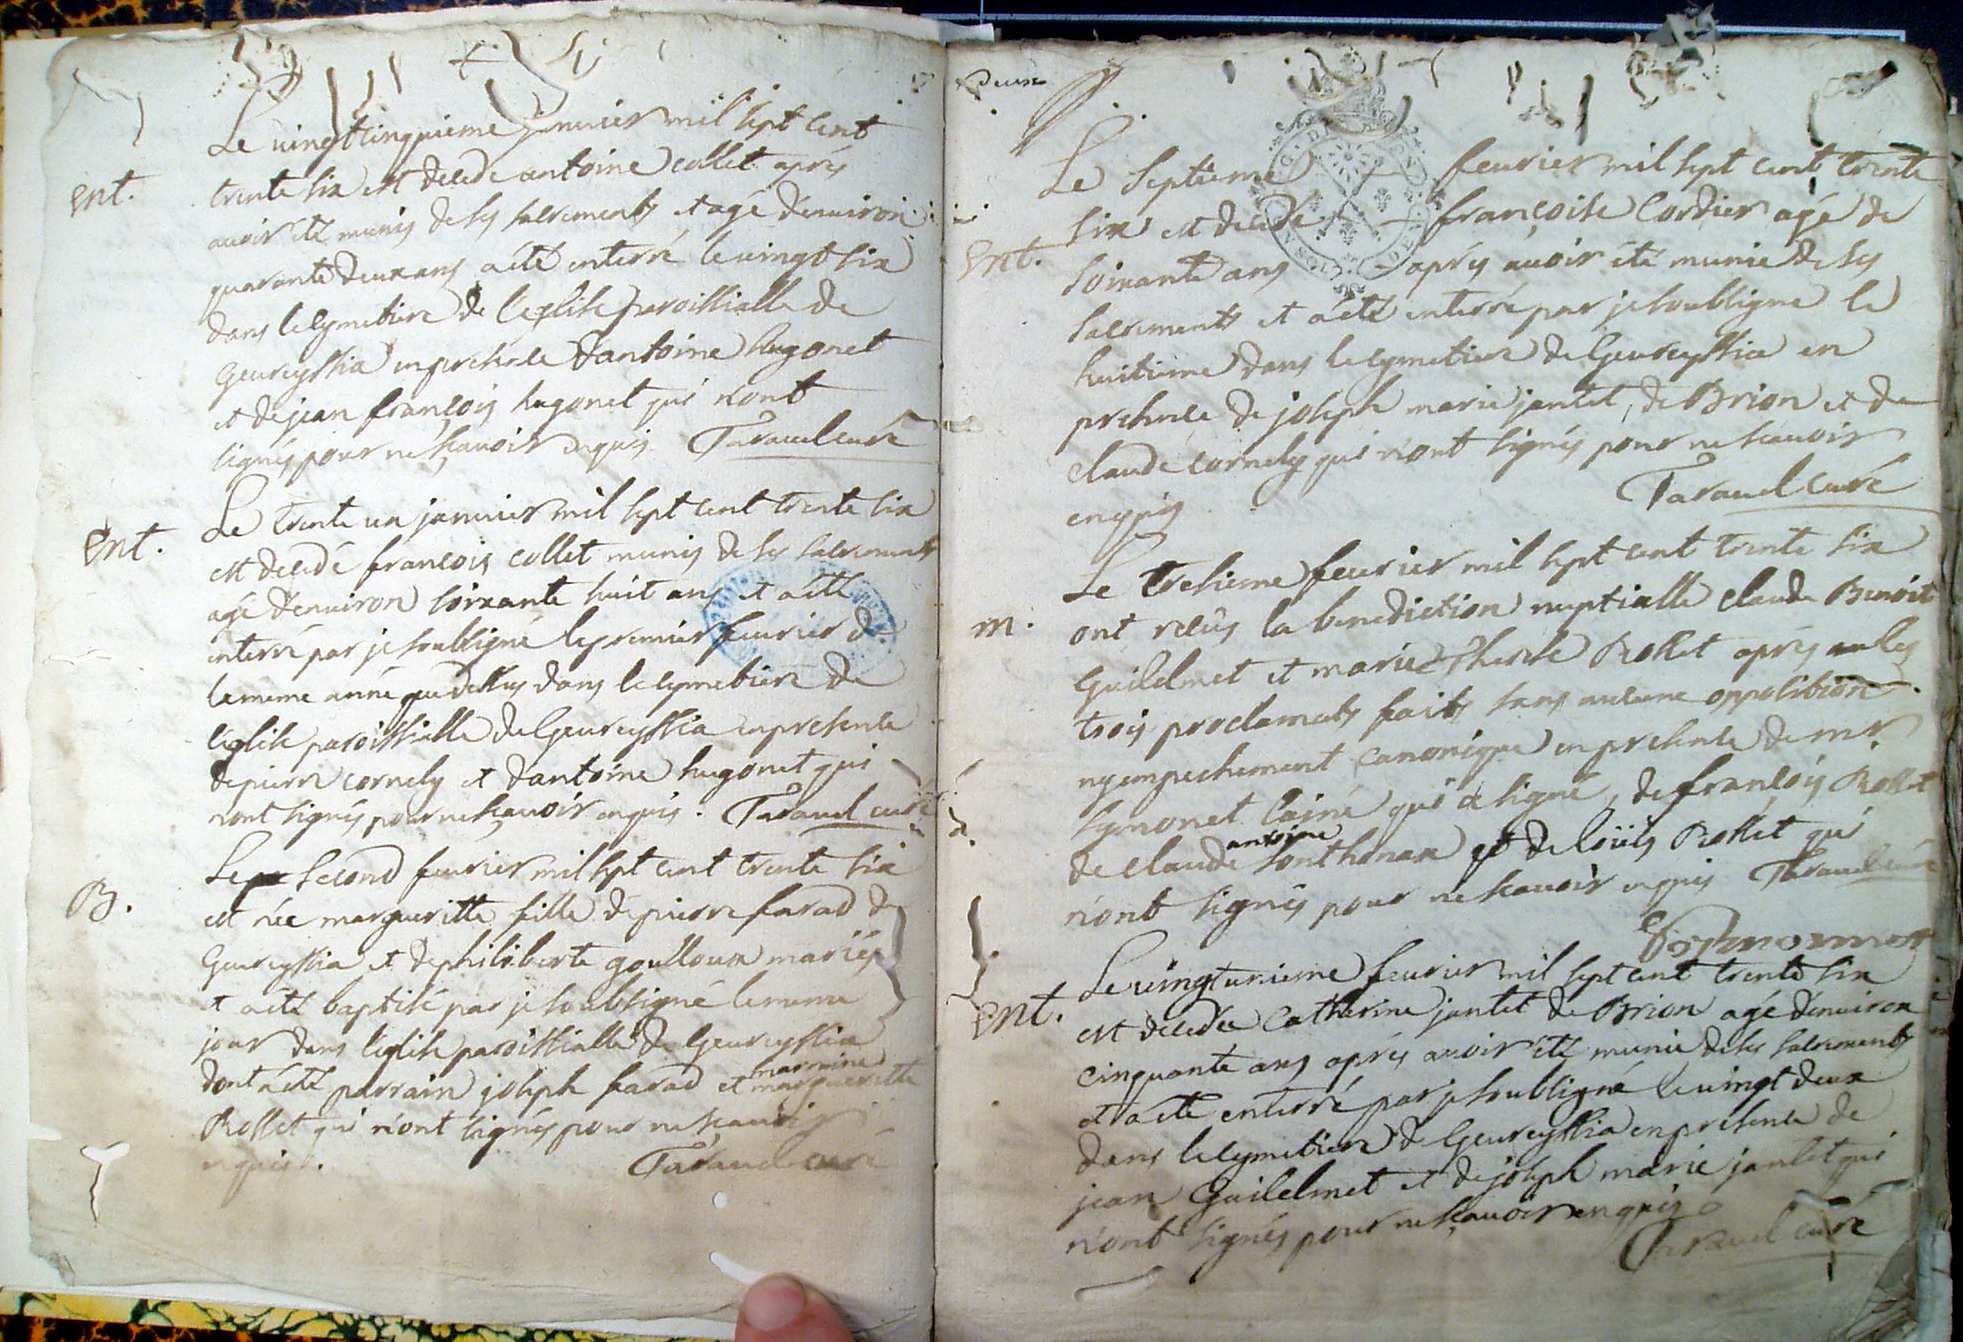 Le vingtcinquieme janvier mil sept cent
Ent.
trente six est decede antoine collet après
avoir eté munis de ses sacrements et agé d'environ
quarante deux ans a eté enterré le vingt six
dans le cymetiere de l'eglise paroissialle de
Geureyssia en presence d'antoine hugonet
et de jean françois hugonet qui n'ont
signés pour ne sçavoir enquis. Taravel curé
Le trente un janvier mil sept cent trente six
Ent.
est decedé francois collet munis de ses sacrements
agé d'environ soixante huit ans et a eté
enterré par je soubsigné le premier fevrier de
la meme année que dessus dans le cymetiere de
l'eglise paroissialle de Geureyssia en presence
de pierre cornely et d'antoine hugonet qui
n'ont signés pour ne sçavoir enquis. Taravel curé
Le second fevrier mil sept cent trente six
B.
est née margueritte fille de pierre farad de
Geureyssia et de philiberte goulloux mariés
et a eté baptisé par je soubsigné le meme
jour dans l'eglise paroissialle de Geureyssia
dont a eté parrain joseph farad et marraine margueritte
Rosset qui n'ont signés pour ne scavoir
enquis. Taravel curé
deux
Le septieme fevrier mil sept cent trente
six est decede françoise Cordier agé de
Ent.
soixante ans après avoir été munie de ses
sacrements et a eté enterré par je soubsigne le
huitieme dans le cymetiere de Geureyssia en
presence de joseph marie jantet, de Brion et de
claude cornely qui n'ont signés pour ne scavoir
enquis Taravel curé
Le tresieme fevrier mil sept cent trente six
m.
ont reçus la benediction nuptialle claude Benoit
Guilelmet et marie Therese Rosset après les
trois proclamats faits sans aucune opposition
ny empechement canonique en presence de mr.
symonet l'ainé qui a signé, de françois Rosset
de claude antoine sonthonax et de loüis Rosset qui
n'ont signés pour ne scavoir enquis Taravel curé
Le vingtunieme fevrier mil sept cent trente six
Ent.
est decedée Catherine jantet de Brion agé d'environ
cinquante ans après avoir été munie de ses sacrements
et a eté enterré par je soubsigné le vingt deux
dans le cymetiere de Geureyssia en presence de
jean Guilelmet et de joseph marie jantet qui
n'ont signés pour ne sçavoir enquis
Taravel curé